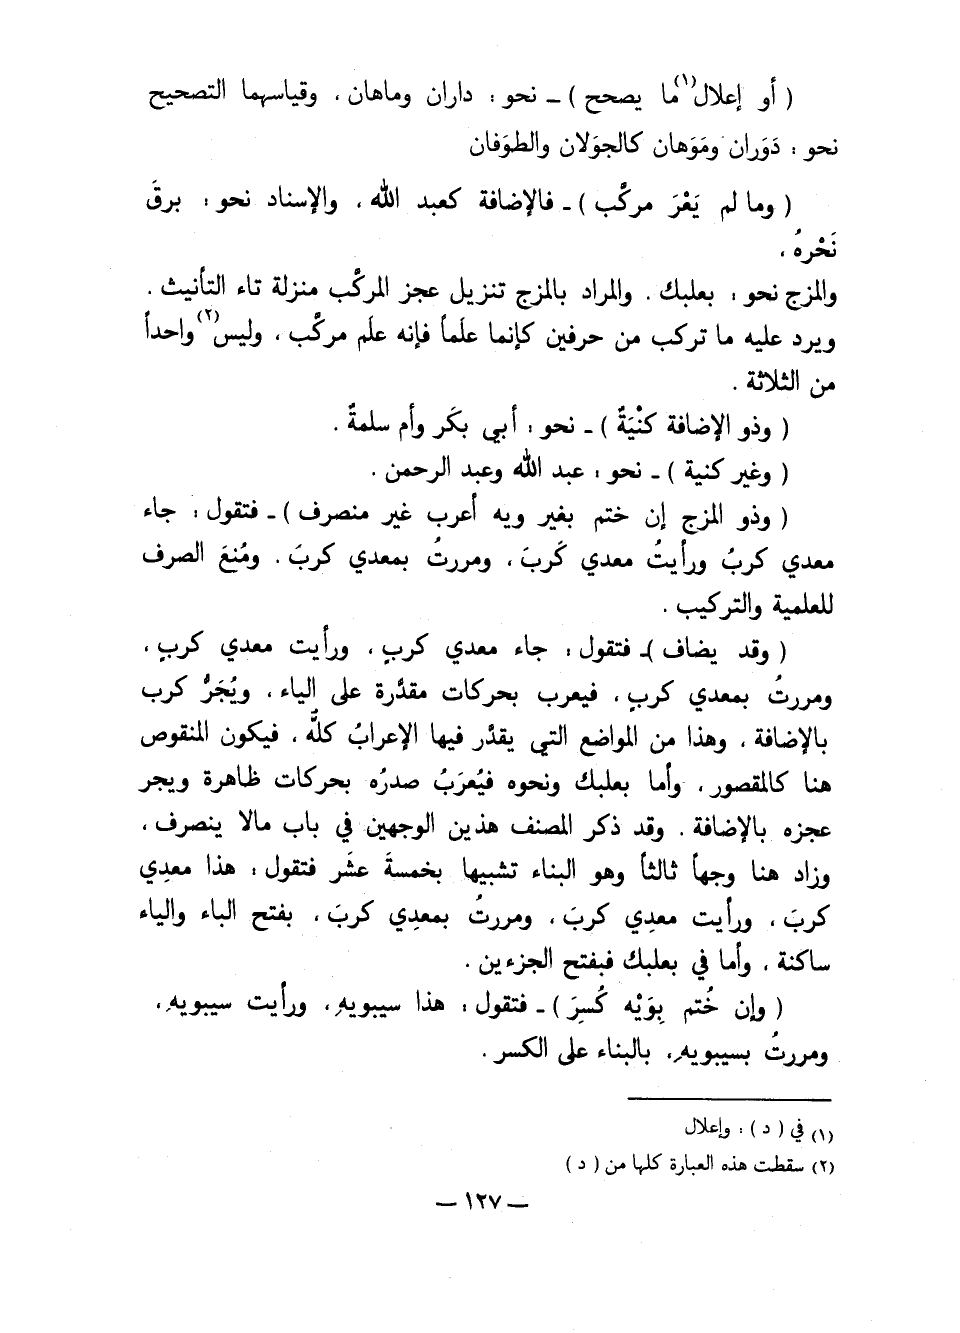 ( أو إعلال(١) ما يصحح ) ـ نحو : داران وماهان ، وقياسهما التصحيح
نحو : دَوَران ومَوَهان كالجوَلان والطوَفان
( وما لم يَعْرَ مركَّب ) ـ فالإضافة كعبد الله ، والإسناد نحو : برقَ
نَحْرهُ ،
والمزج نحو : بعلبك . والمراد بالمزج تنزيل عجز المركَّب منزلة تاء التأنيث .
ويرد عليه ما تركب من حرفين كإنما علَماً فإنه علَم مركَّب ، وليس(٢) واحداً
من الثلاثة .
( وذو الإضافة كنْيَةٌ ) ـ نحو : أبي بكَر وأم سلمةٌ .
( وغير كنية ) ـ نحو : عبد الله وعبد الرحمن .
( وذو المزج إن ختم بغير ويه أعرب غير منصرف ) ـ فتقول : جاء
معدي كربُ ورأيتُ معدي كَربَ ، ومررتُ بمعدي كربَ . ومُنعَ الصرف
للعلمية والتركيب .
( وقد يضاف )ـ فتقول : جاء معدي كربٍ ، ورأيت معدي كربٍ ،
ومررتُ بمعدي كربٍ ، فيعرب بحركات مقدَّرة على الياء ، ويُجَرُّ كرب
بالإضافة ، وهذا من المواضع التي يقدَّر فيها الإعرابُ كلُّه ، فيكون المنقوص
هنا كالمقصور ، وأما بعلبك ونحوه فيُعرَبُ صدرُه بحركات ظاهرة ويجر
عجزه بالإضافة . وقد ذكر المصنف هذين الوجهين في باب مالا ينصرف ،
وزاد هنا وجهاً ثالثاً وهو البناء تشبيها بخمسةَ عشَر فتقول : هذا معدِي
كربَ ، ورأيت معدِي كربَ ، ومررتُ بمعدِي كربَ ، بفتح الباء والياء
ساكنة ، وأما في بعلبك فبفتح الجزءين .
( وإن خُتم بِوَيْه كُسِرَ ) ـ فتقول : هذا سيبويهِ ، ورأيت سيبويهِ ،
ومررتُ بسيبويهِ ، بالبناء على الكسر .
(١) في ( د ) : وإعلال
(٢) سقطت هذه العبارة كلها من ( د )
— ١٢٧ —